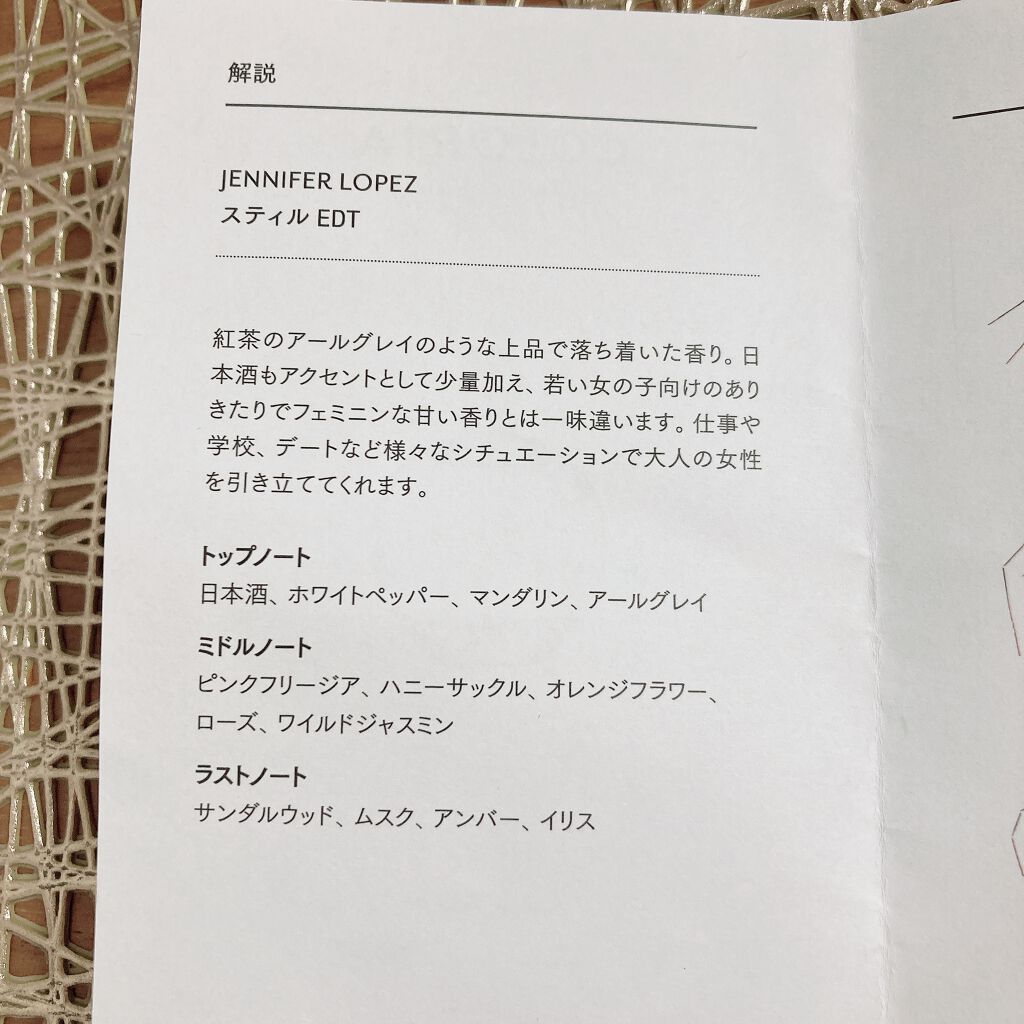 解説
JENNIFER LOPEZ
スティル EDT
紅茶のアールグレイのような上品で落ち着いた香り。日
本酒もアクセントとして少量加え、若い女の子向けのあり
きたりでフェミニンな甘い香りとは一味違います。仕事や
学校、デートなど様々なシチュエーションで大人の女性
を引き立ててくれます。
トップノート
日本酒、ホワイトペッパー、マンダリン、アールグレイ
ミドルノート
ピンクフリージア、ハニーサックル、オレンジフラワー、
ローズ、ワイルドジャスミン
ラストノート
サンダルウッド、ムスク、アンバー、イリス